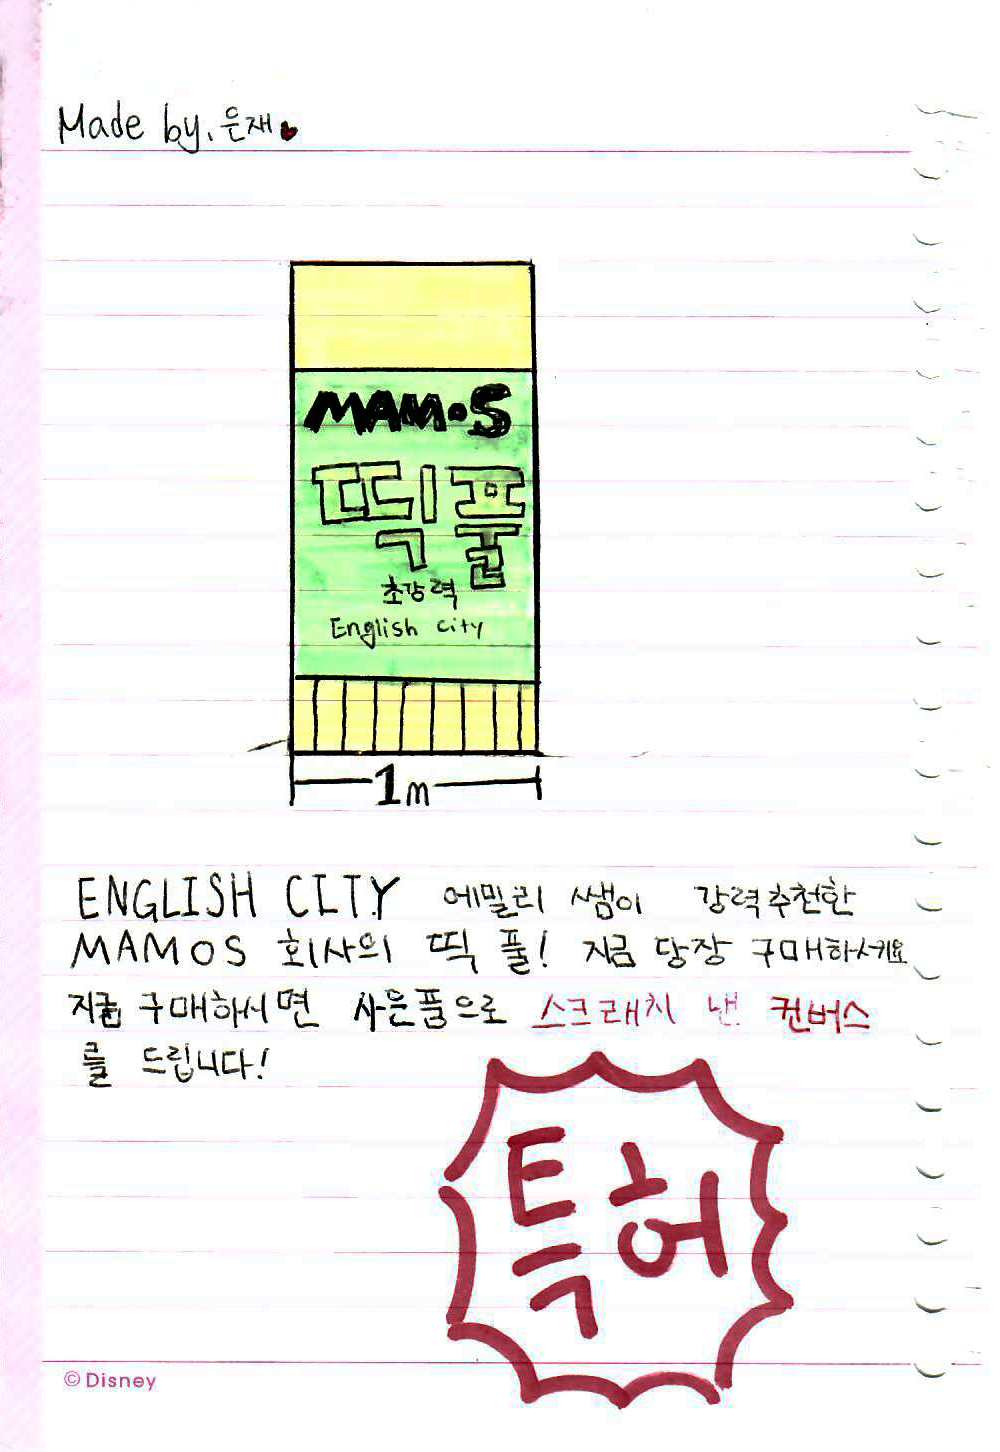 Made by. 은재
MAMOS
띡풀
초강력
English city
1m
ENGLISH CITY 에밀리 쌤이 강력추천한
MAMOS 회사의 띡 풀! 지금 당장 구매하서키요
지금 구매하시면 사은품으로 스크래치 낸 컨버스
를 드립니다!
특허
© Disney